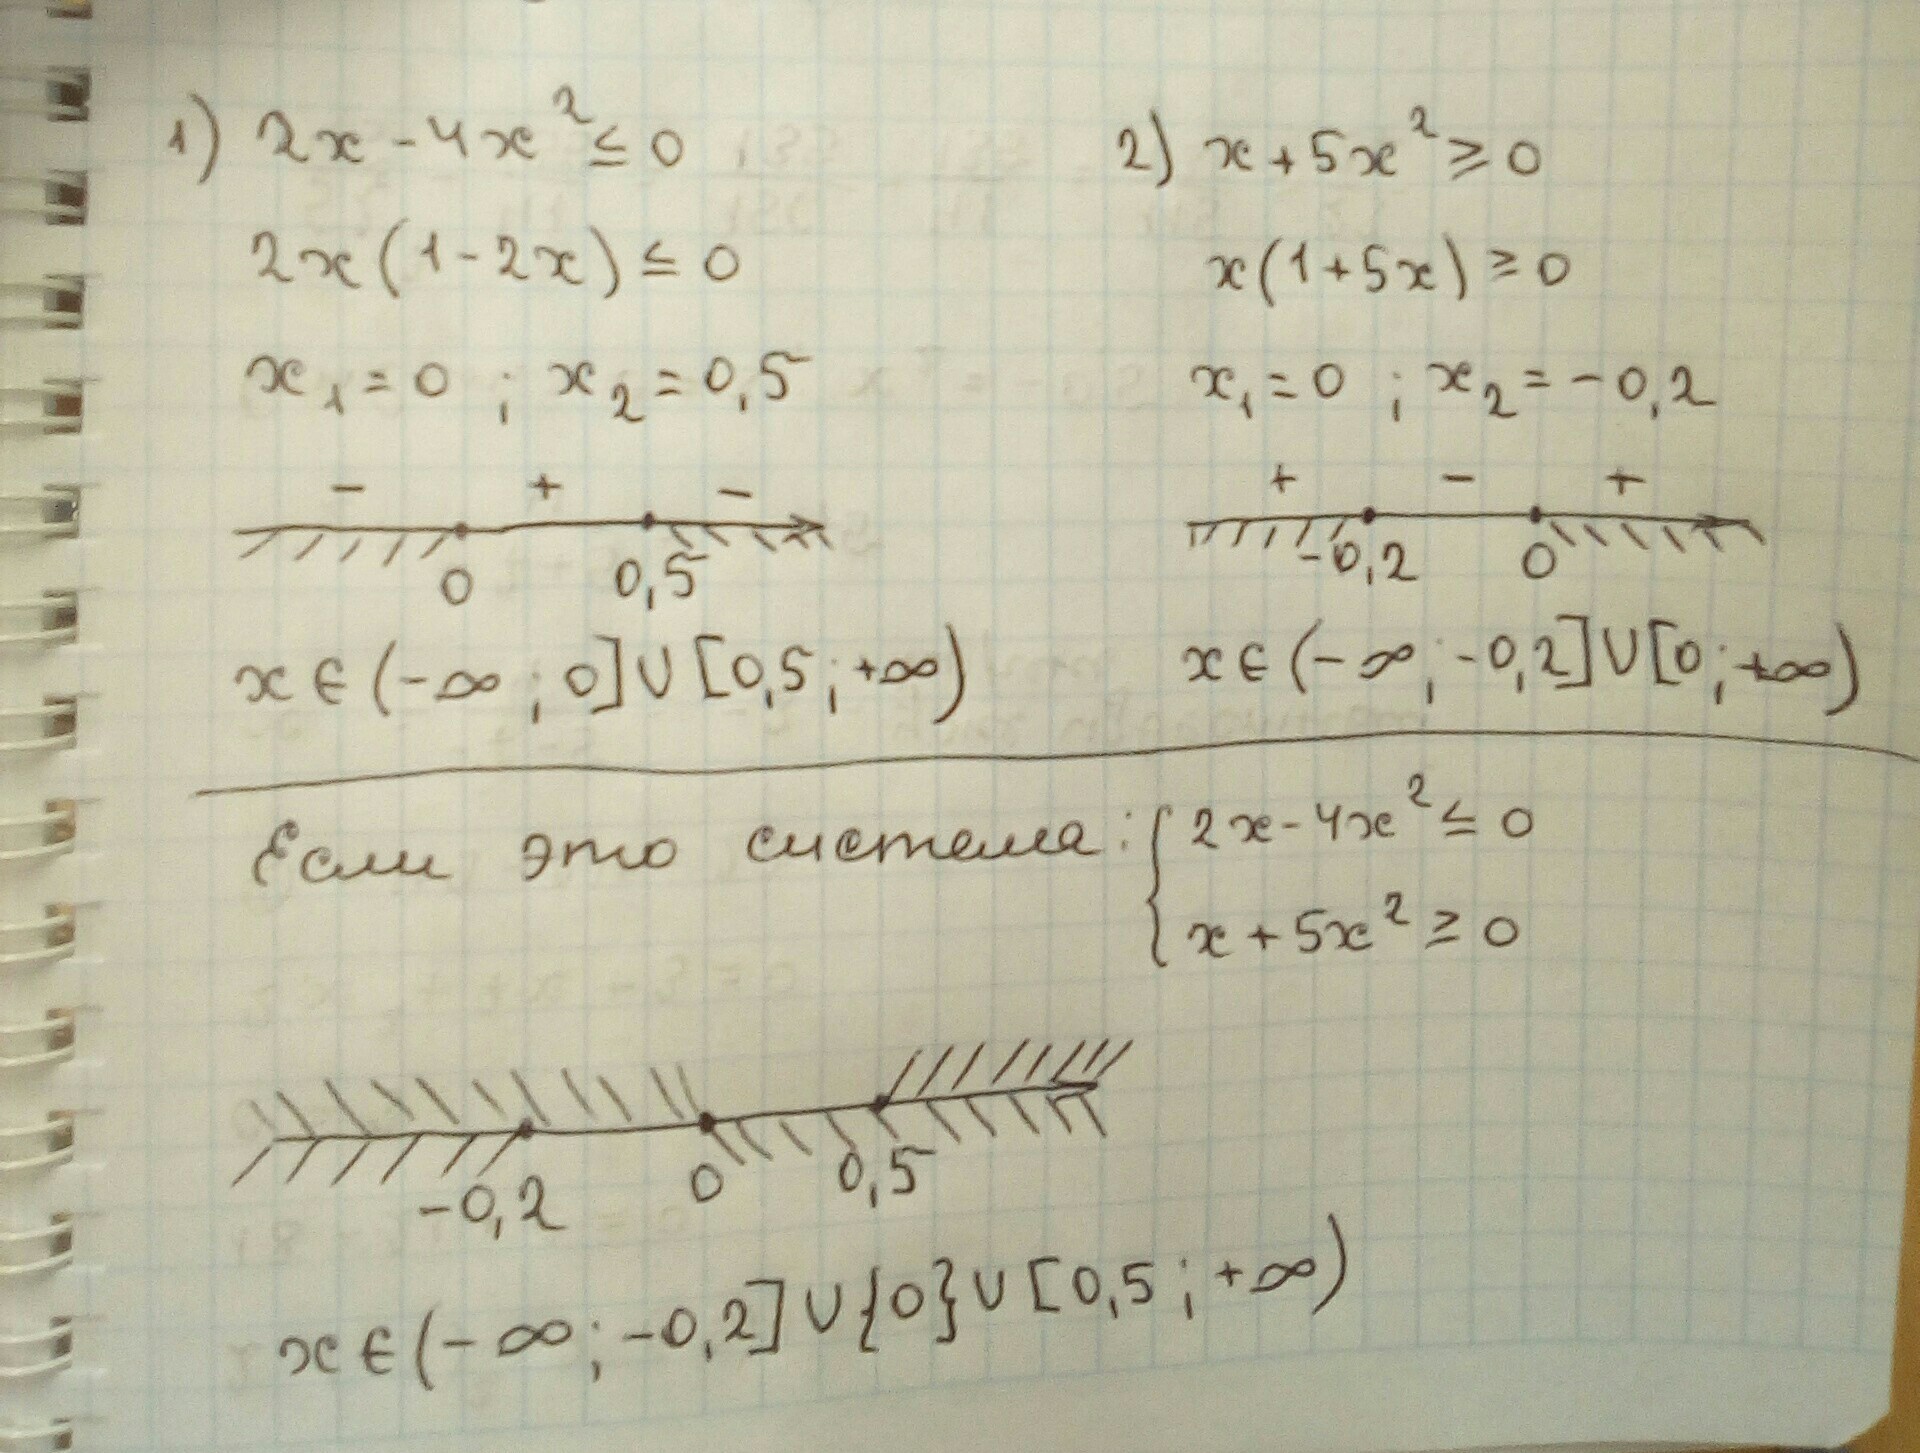 1) 2x - 4x² ≤ 0
2x(1 - 2x) ≤ 0
x₁ = 0 ; x₂ = 0,5
- + -
0 0,5
x ∈ (-∞ ; 0] ∪ [0,5 ; +∞)
2) x + 5x² ≥ 0
x(1 + 5x) ≥ 0
x₁ = 0 ; x₂ = -0,2
+ - +
-0,2 0
x ∈ (-∞ ; -0,2] ∪ [0 ; +∞)
Если это система: { 2x - 4x² ≤ 0
x + 5x² ≥ 0
-0,2 0 0,5
x ∈ (-∞ ; -0,2] ∪ {0} ∪ [0,5 ; +∞)